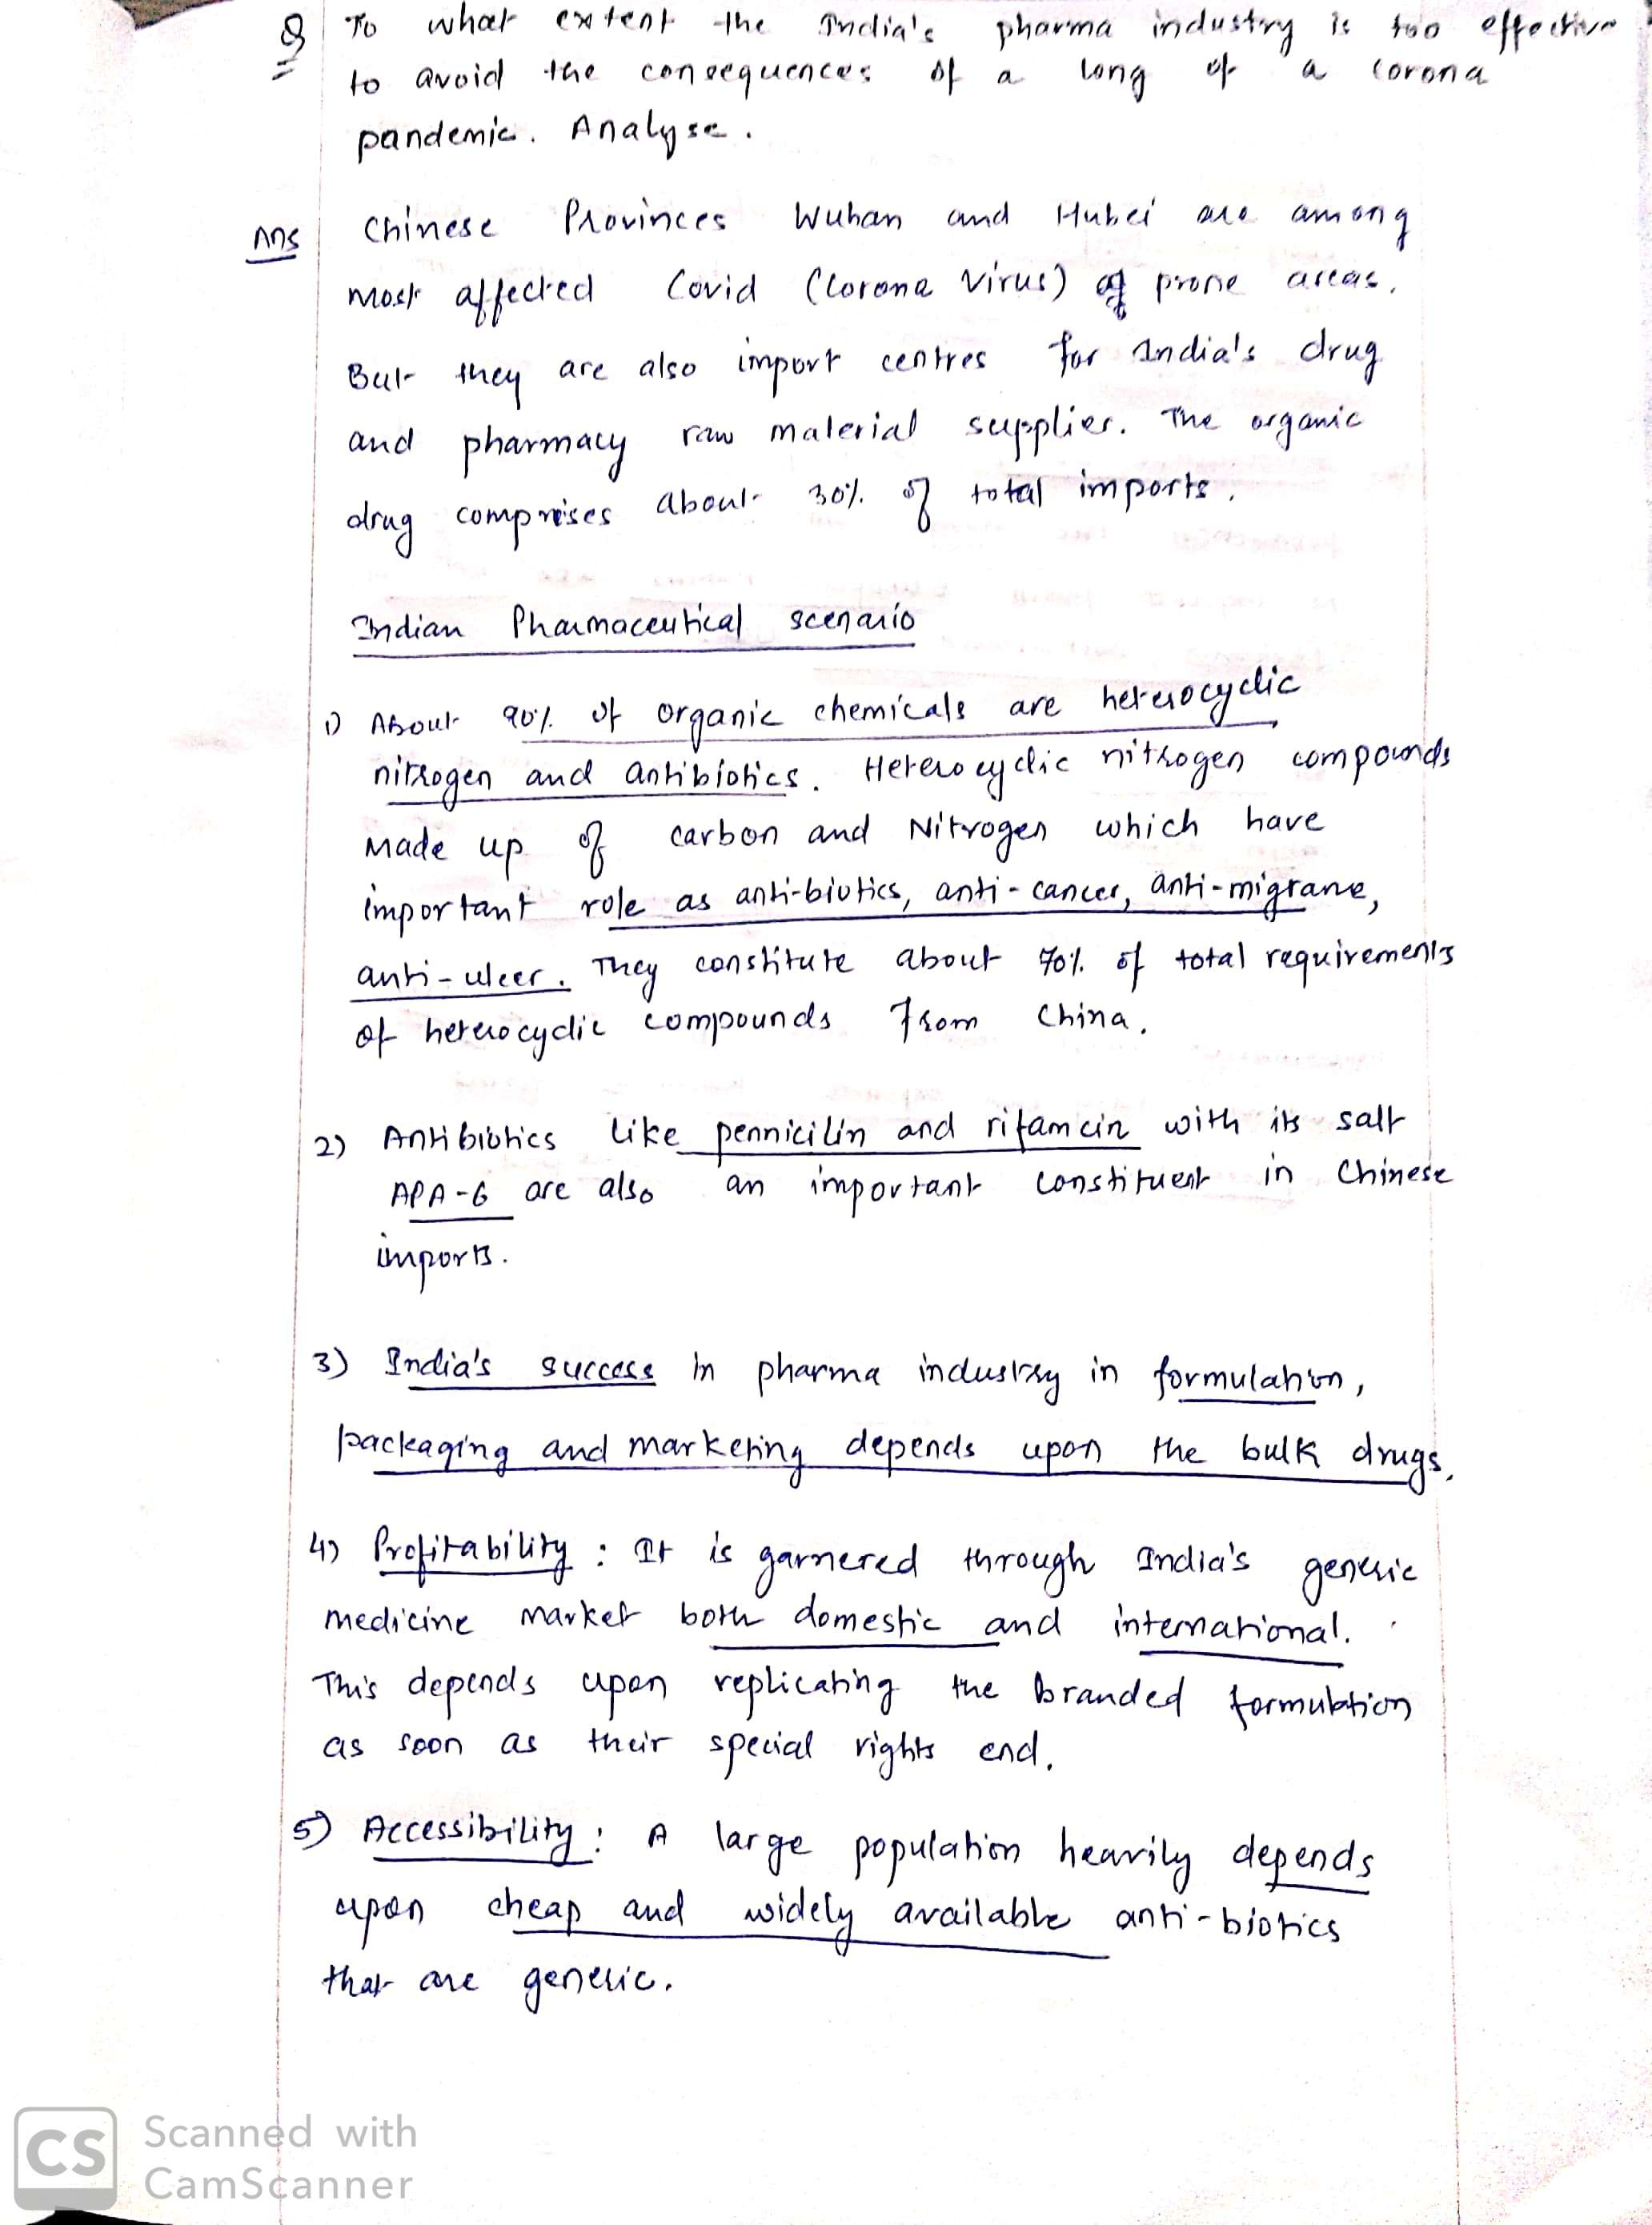 Q To what extent the India's pharma industry is too effective
to avoid the consequences of a long of a corona
pandemic. Analyse.
Ans Chinese Provinces Wuhan and Hubei are among
most affected Covid (Corona Virus) prone areas.
But they are also import centres for India's drug
and pharmacy raw material supplier. The organic
drug comprises about 30% of total imports.
Indian Pharmaceutical scenario
1) About 90% of organic chemicals are heterocyclic
nitrogen and antibiotics. Heterocyclic nitrogen compounds
made up of carbon and Nitrogen which have
important role as anti-biotics, anti-cancer, anti-migrane,
anti-ulcer. They constitute about 70% of total requirements
of heterocyclic compounds from China.
2) Antibiotics like pennicilin and rifamcin with its salt
APA-6 are also an important constituent in Chinese
imports.
3) India's success in pharma industry in formulation,
packaging and marketing depends upon the bulk drugs.
4) Profitability : It is garnered through India's generic
medicine market both domestic and international.
This depends upon replicating the branded formulation
as soon as their special rights end.
5) Accessibility : A large population heavily depends
upon cheap and widely available anti-biotics
that are generic.
CS Scanned with
CamScanner